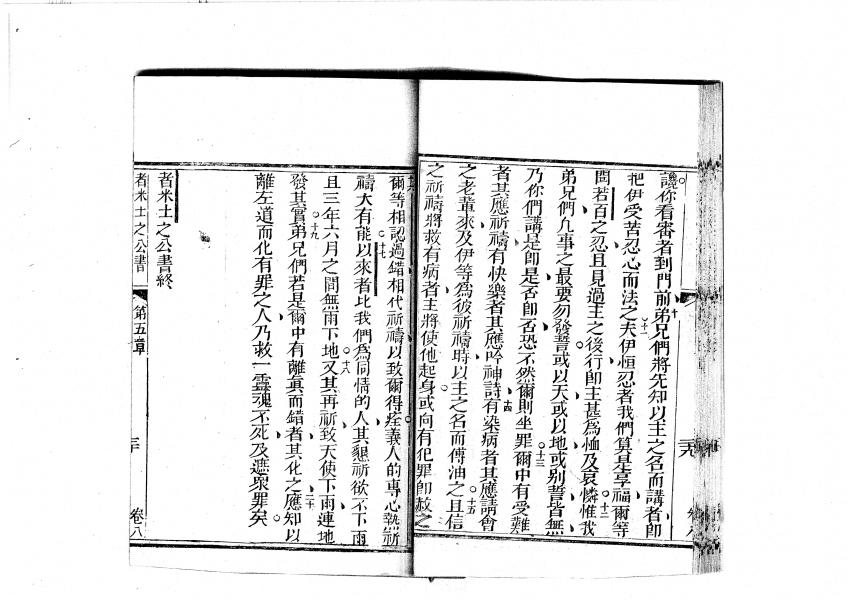 讒你看審者到門前弟兄們將先知以主之名而講者即
十
把伊受苦忍心而法之夫伊恒忍者我們算是享福爾等
十一
聞若百之忍且見過主之後行即主甚為恤及哀憐惟我
十二
弟兄們凡事之最要勿發誓或以天或以地或別誓皆無
乃你們講是即是否即否恐不然爾則坐罪爾中有受難
十三
者其應祈禱有快樂者其應吟神詩有染病者其應請會
十四
之老輩來及伊等為彼祈禱時以主之名而傅油之且信
十五
之祈禱將救有病者主將使他起身或向有犯罪即赦之
爾等相認過錯相代祈禱以致爾得痊義人的專心熱祈
禱大有能以來者比我們為同情的人其懇祈欲不下雨
十七
且三年六月之間無雨下地又其再祈致天使下雨連地
十八
發其實弟兄們若是爾中有離真而錯者其化之應知以
十九
二十
離左道而化有罪之人乃救一靈魂不死及遮衆罪矣
者米士之公書終
者米士之公書
第五章
三十
卷八